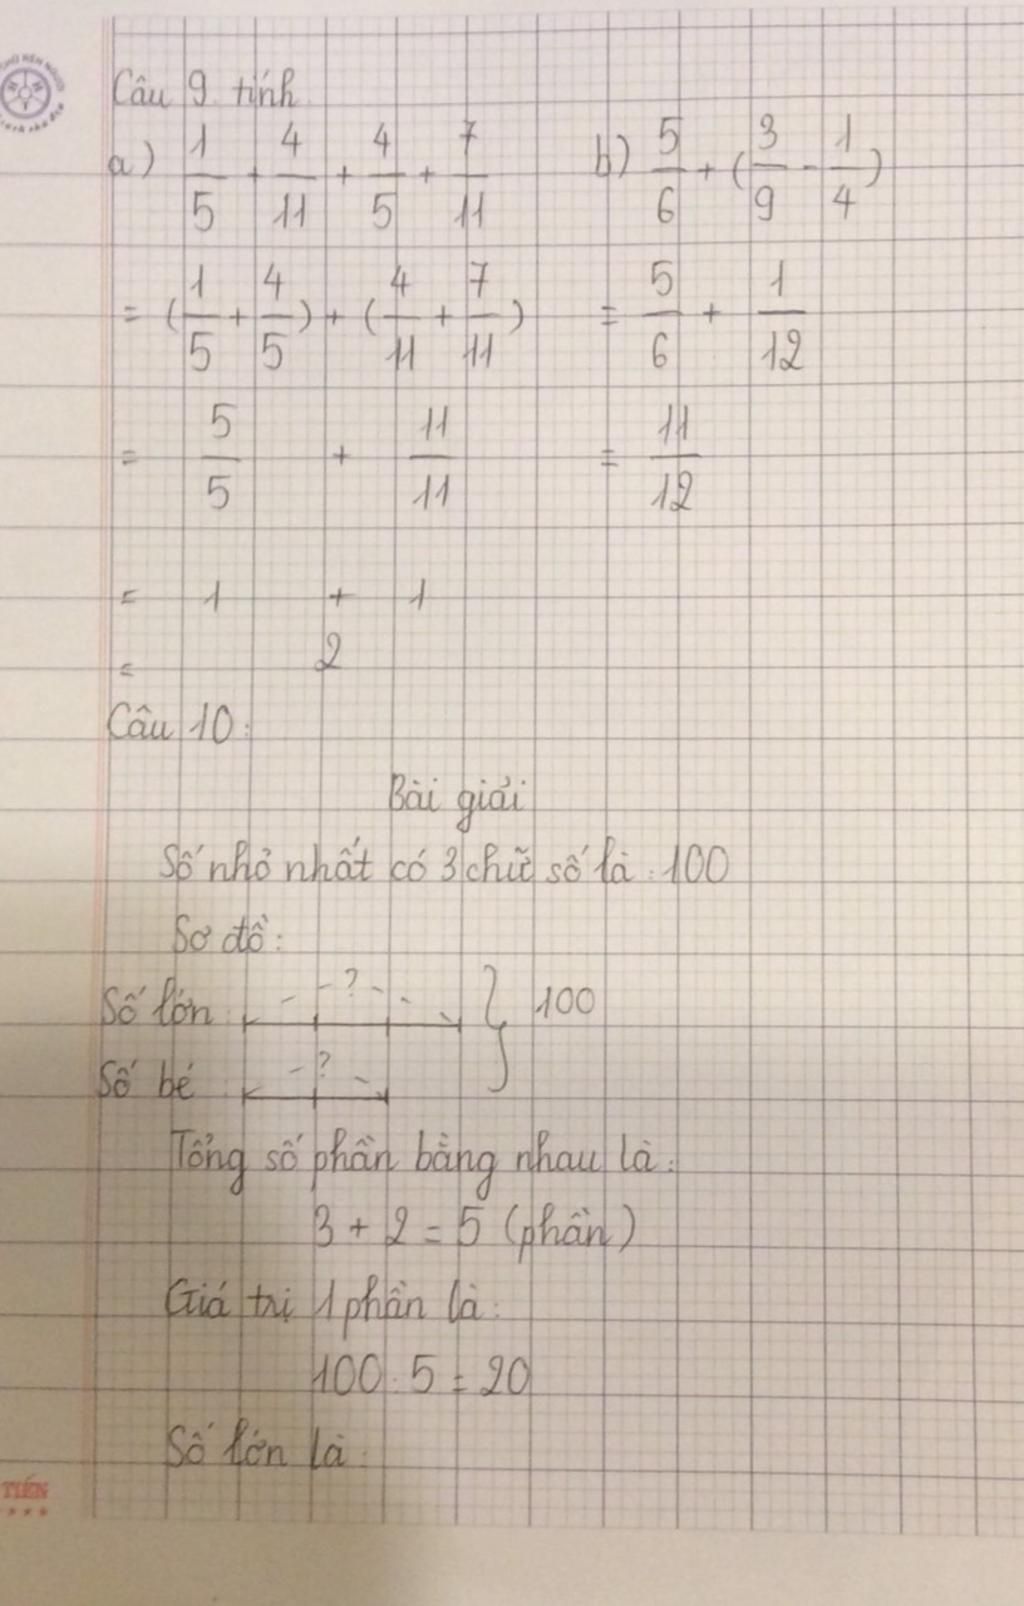 Câu 9. tính
a) 1/5 + 4/11 + 4/5 + 7/11
= (1/5 + 4/5) + (4/11 + 7/11)
= 5/5 + 11/11
= 1 + 1
= 2
b) 5/6 + (3/9 - 1/4)
= 5/6 + 1/12
= 11/12
Câu 10:
Bài giải
Số nhỏ nhất có 3 chữ số là: 100
Sơ đồ:
Số lớn ? 100
Số bé ?
Tổng số phần bằng nhau là:
3 + 2 = 5 (phần)
Giá trị 1 phần là:
100 : 5 = 20
Số lớn là:
TIẾN